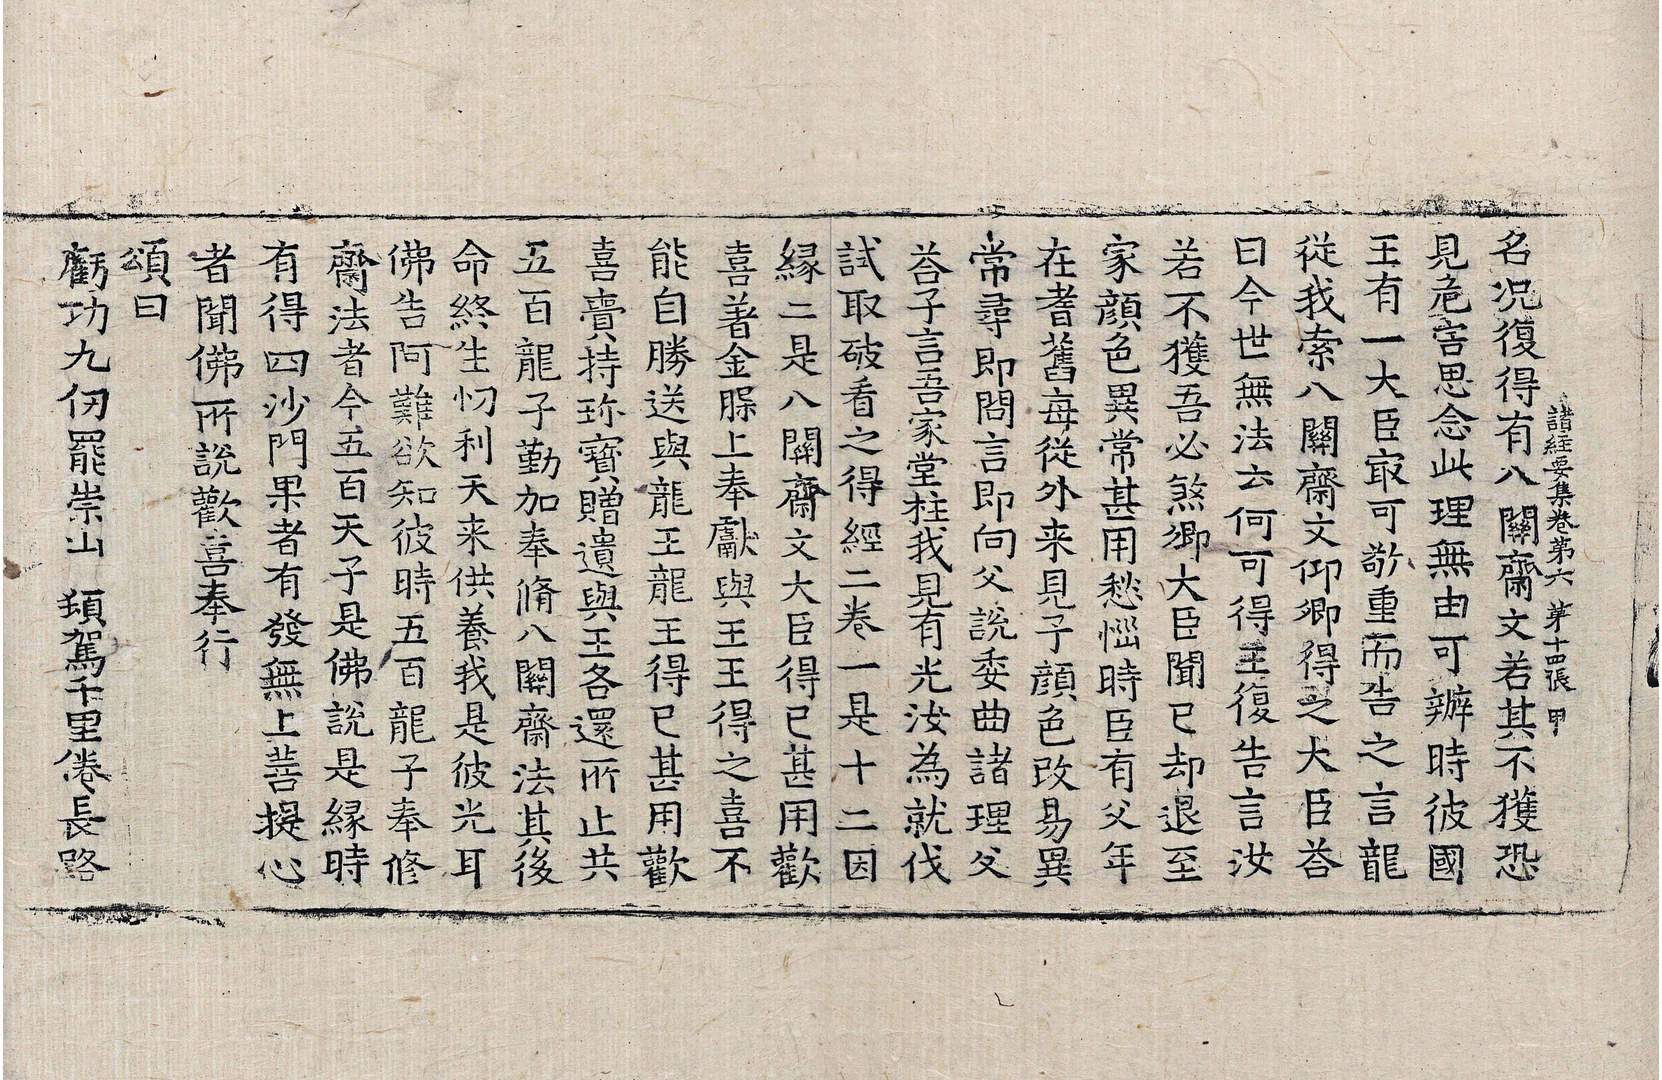 諸經要集卷第六 第十四張 甲
名况復得有八關齋文若其不獲恐
見危害思念此理無由可辦時彼國
王有一大臣㝡可敬重而告之言龍
從我索八關齋文仰卿得之大臣荅
曰今世無法云何可得王復告言汝
若不獲吾必煞卿大臣聞已却退至
家顔色異常甚用愁惱時臣有父年
在耆舊每從外来見子顔色改易異
常尋即問言即向父說委曲諸理父
荅子言吾家堂柱我見有光汝為就伐
試取破看之得經二卷一是十二因
縁二是八關齋文大臣得已甚用歡
喜著金𣖙上奉獻與王王得之喜不
能自勝送與龍王龍王得已甚用歡
喜賷持珎寶贈遺與王各還所止共
五百龍子勤加奉脩八關齋法其後
命終生忉利天来供養我是彼光耳
佛告阿難欲知彼時五百龍子奉修
齋法者今五百天子是佛說是縁時
有得四沙門果者有發無上菩提心
者聞佛所說歡喜奉行
頌曰
虧功九仞罷崇山 頓駕千里倦長路